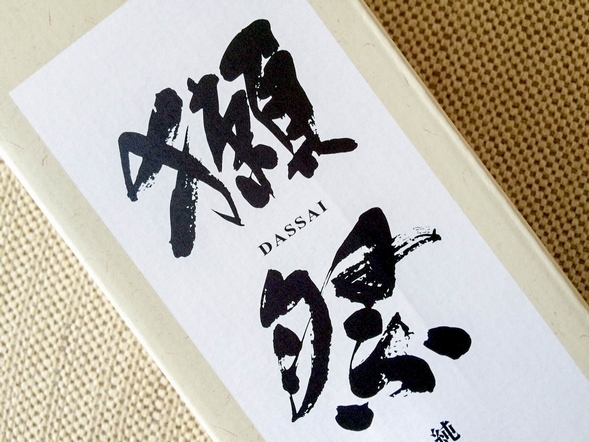 獺祭
DASSAI
純